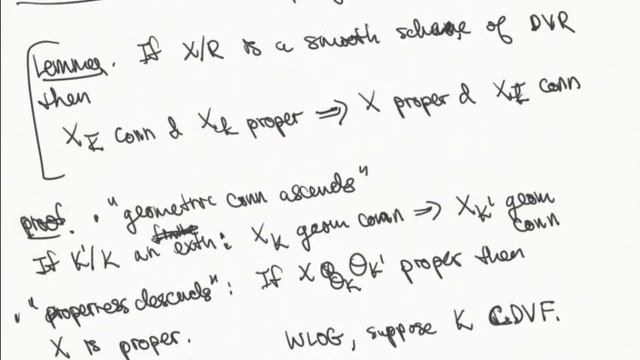 Lemma. If X/R is a smooth scheme of DVR
then
X_K̄ conn & X_k proper ⇒ X proper & X_k̄ conn
proof. • "geometric conn ascends"
If K'/K an extn: X_K geom conn ⇒ X_K' geom conn
• "properness descends": If X ⊗_{O_K} O_K' proper then
X is proper. WLOG, suppose K CDVF.